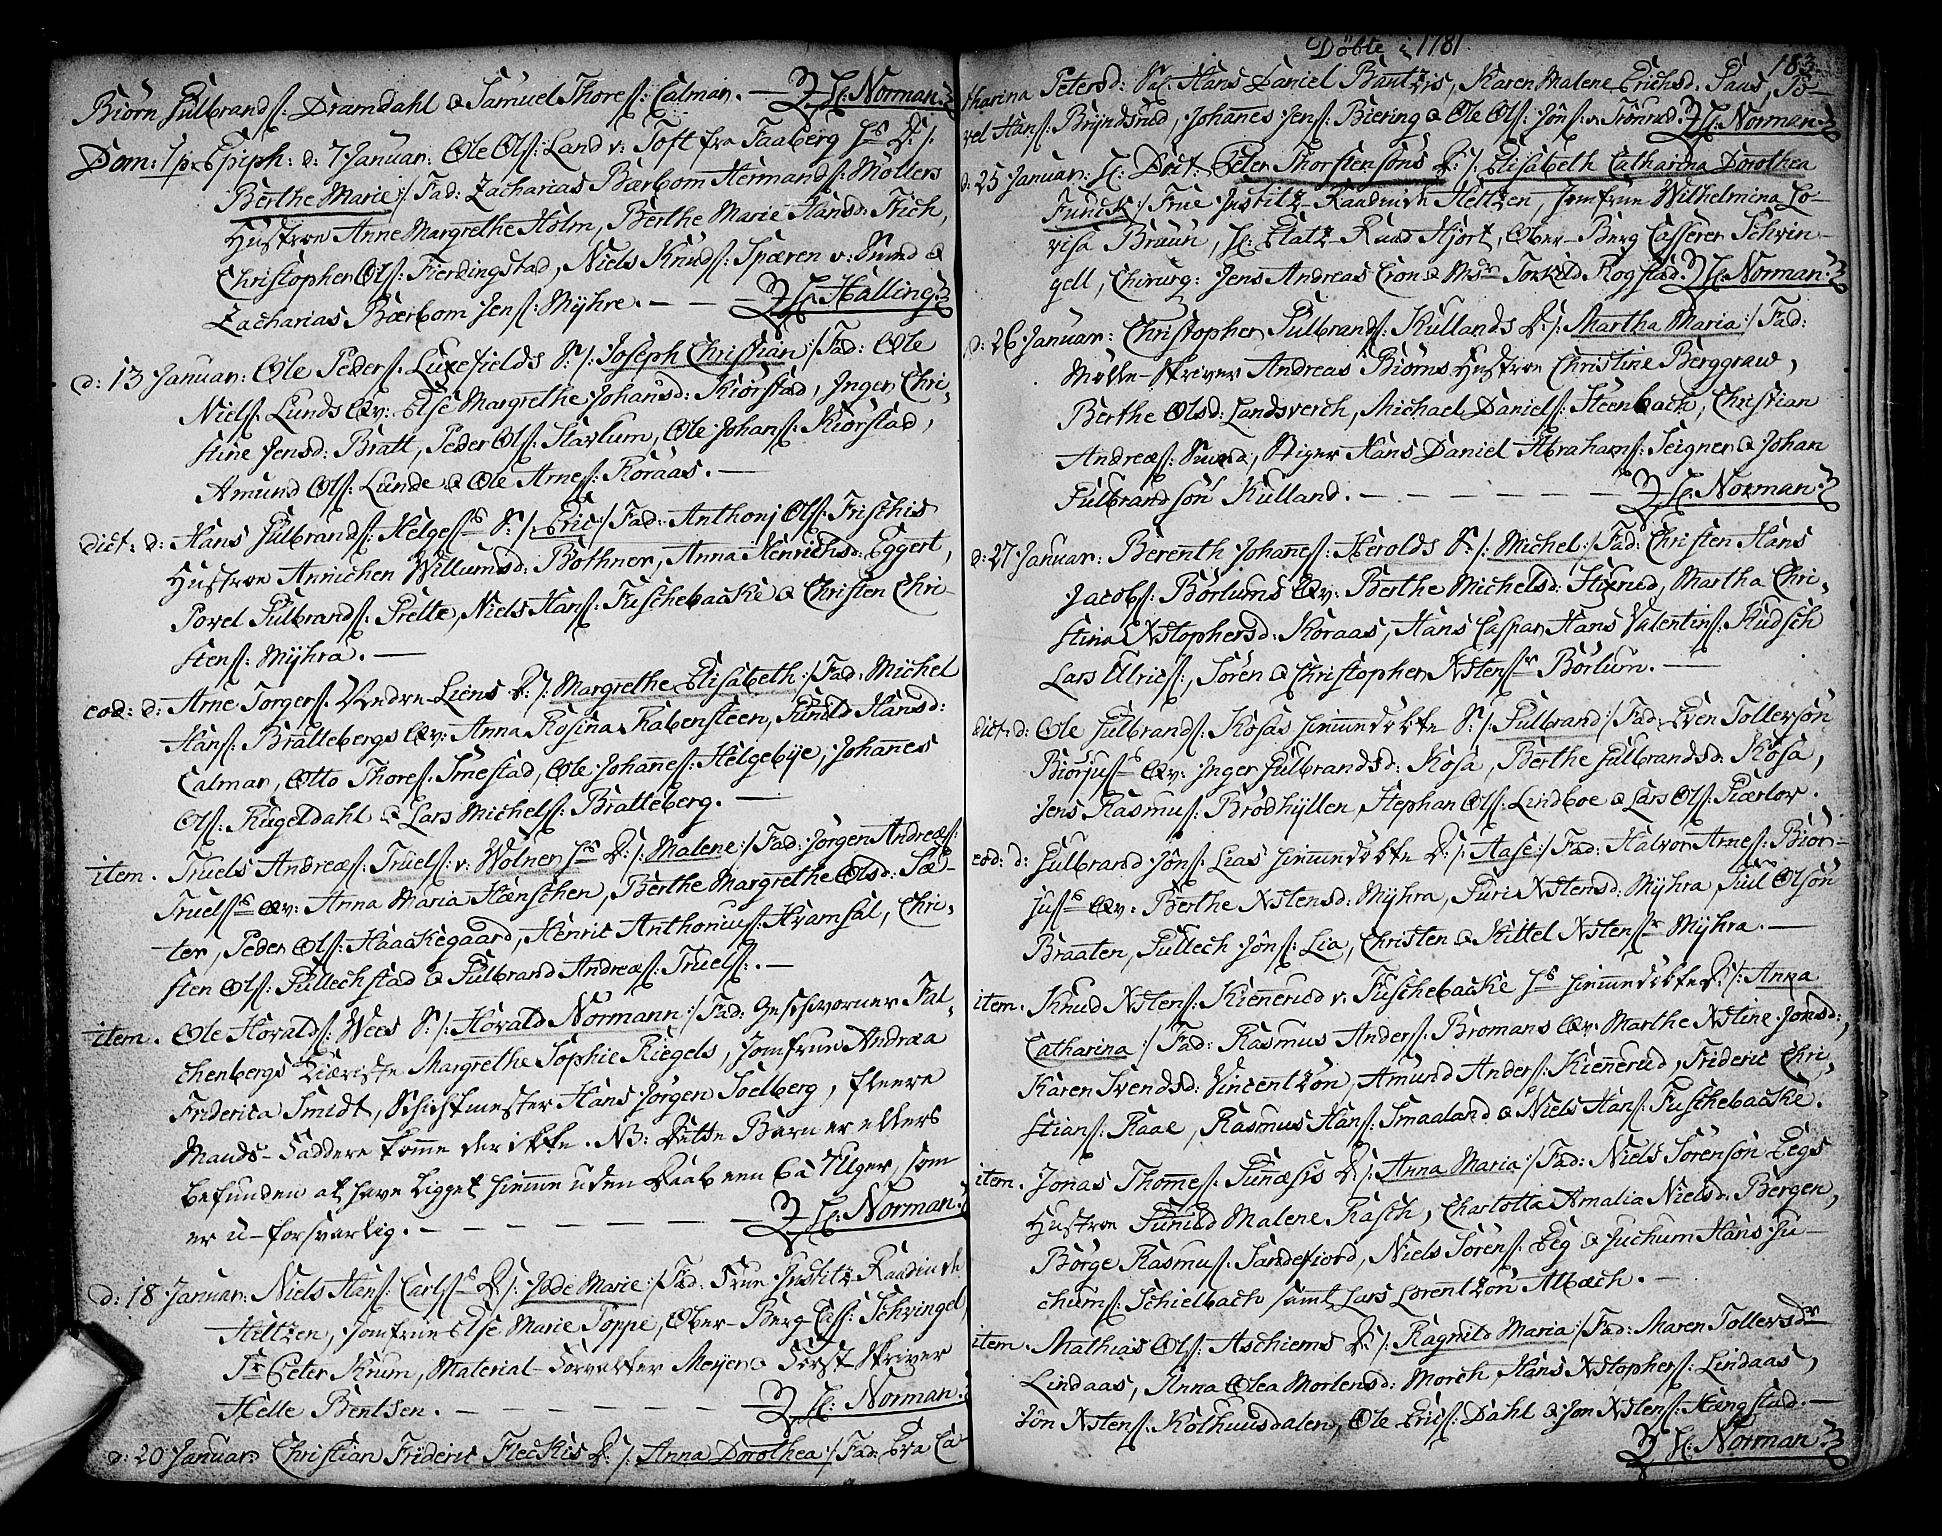 Biörn Gulbrands: Dramdahl & Samuel Thores: Calmar. — H: Norman.
Dom: 1 p. Epiph: d: 7 Januar: Ole Ols: Land v: Toft fra Faaberg Hs D: /:
Berthe Marie :/ Fad: Zacharias Bærbom Hermands: Möllers
Hustroe Anne Margrethe Holm, Berthe Marie Hansd: Frich,
Christopher Ols: Fierdingstad, Niels Knuds: Spæren v: Sund &
Zacharias Bærbom Jens: Mÿhre. — — H: Halling.
d: 13 Januar: Ole Peders: Luxefields S: /: Joseph Christian :/ Fad: Ole
Niels: Lunds Qv: Else Margrethe Johansd: Kiörstad, Inger Chri-
stine Jensd: Bratt, Peder Ols: Stavlum, Ole Johans: Kiörstad,
Amund Ols: Lunde & Ole Arnes: Koraas. —
dict: d: Hans Gulbrands: Helgess S: /: Eric :/ Fad: Anthonj Ols: Frischis
Hustroe Annichen Willumsd: Bothner, Anna Henrichsd: Eggert,
Povel Gulbrands: Prelte, Niels Hans: Fuschebacke & Christen Chri-
stens: Mÿhra. —
eod: d: Arne Torgers: Vendre-Liens D: /: Margrethe Elisabeth :/ Fad: Michel
Hans: Brattebergs Qv: Anna Rosina Rabensteen, Gunild Hansd:
Calmar, Otto Thores: Smestad, Ole Johanes: Helgebÿe, Johannes
Ols: Kugeldahl & Lars Michels: Bratteberg. —
item. Truels Andreæs: Truels: v: Wolner Hs D: /: Malene :/ Fad: Jörgen Andreæs:
Truelss Qv: Anna Maria Hænschen, Berthe Margrethe Olsd: Sæ-
ter, Peder Ols: Haakegaard, Henric Anthonius: Kvamsal, Chri-
sten Ols: Gullechstad & Gulbrand Andreæs: Truels:. —
item. Ole Hovalds: Wees S: /: Hovald Normann :/ Fad: Geschvorner Fal-
chenbergs Kiæreste Margrethe Sophie Riegels, Jomfrue Andræa
Friderica Smidt, Schichtmester Hans Jörgen Soelberg, fleere
Mands-Faddere komme der ikke. NB: Dette Barn er ellers
befunden at have ligget hiemme uden Daab een 6 à 7 Uger, som
er u-forsvarlig. — — — — — H: Norman.
d: 18 Januar: Niels Hans: Carlss D: /: Jode Marie :/ Fad: Frue Justitz-Raadinde
Heltzen, Jomfrue Else Marie Poppe, Ober-Berg Cass: Schvingel,
Sr Peter Krum, Material-Forvalter Meyer & Forst-Skriver
Helle Bentsen. — — — — H: Norman.
d: 20 Januar: Christian Frideric Fleckis D: /: Anna Dorothea :/ Fad: Eva Ca-
Döbte i 1781
183
tharina Petersd: Hans Daniel Bautzis, Karen Malene Erichsd: Saus, Po-
vel Hans: Brÿndsrud, Johanes Jens: Biering & Ole Ols: Jöns: v: Trönrud. H: Norman.
d: 25 Januar: H: Doct: Peter Thorstensöns D: /: Elisabeth Catharina Dorothea
Funck :/ Frue Justitz-Raadinde Heltzen, Jomfrue Wilhelmina Lo-
visa Braun, H: Etatz-Raad Hjort, Ober-Berg Casserer Schvin-
gell, Chirurg: Jens Andreas Cron & Msr Torkild Rogstad. H: Norman.
d: 26 Januar: Christopher Gulbrands: Kullands D: /: Martha Maria :/ Fad:
Mölle-Skriver Andreas Biörns Hustroe Christine Berggraw,
Berthe Olsd: Landsverch, Michael Daniels: Steenbach, Christian
Andreæs: Smed, Stiger Hans Daniel Abrahams: Seigner & Johan
Gulbrandsön Kulland. — — — — — H: Norman.
d: 27 Januar: Berenth Johanes: Herolds S: /: Michel :/ Fad: Christen Hans
Jacobs: Börlums Qv: Berthe Michelsd: Skerud, Martha Chri-
stina Xstophersd: Koraas, Hans Caspar Hans Valentins: Kudsch
Lars Ulrics:, Sören & Christopher Xstenssr Börlum. —
dict: d: Ole Gulbrands: Kosas hiemmedöbte S: /: Gulbrand :/ Fad: Even Tollersön
Biörjuss Qv: Inger Gulbrandsd: Kosa, Berthe Gulbrandsd: Kosa,
Jens Rasmus: Brödhÿllen, Stephan Ols: Lindboe & Lars Ols: Kiærlov.
eod: d: Gulbrand Jöns: Lias hiemmedöbte D: /: Aase :/ Fad: Halvor Arnes: Biör-
juss Qv: Berthe Xstensd: Mÿhra, Guri Xstensd: Mÿhra, Juul Olsön
Braaten, Gullech Jöns: Lia, Christen & Kittel Xstenssr Mÿhra. —
item. Knud Xstens: Kiennerud v: Fuschebacke Hs hiemmedöbte D: /: Anna
Catharina :/ Fad: Rasmus Anders: Bromans Qv: Marthe Xstine Jonsd:,
Karen Svendsd: Vincentzön, Amund Anders: Kiennerud, Frideric Chri-
stians: Raae, Rasmus Hans: Smaaland & Niels Hans: Fuschebacke.
item. Jonas Thomes: Gunæsis D: /: Anna Maria :/ Fad: Niels Sörensön Eegs
Hustroe Gunild Malene Rasch, Charlotta Amalia Nielsd: Bergen,
Börge Rasmus: Sandefiord, Niels Sörens: Eeg & Juchum Hans Ju-
chums: Schielbach samt Lars Lorentzön Albæch. —
item. Mathias Ols: Aschiems D: /: Ragnild Maria :/ Fad: Maren Tollersdr
Lindaas, Anna Olea Mortensd: Morch, Hans Xstophers: Lindaas,
Jön Xstens: Kolhuusdalen, Ole Erics: Dahl & Jon Xstens: Hengstad. —
H: Norman.